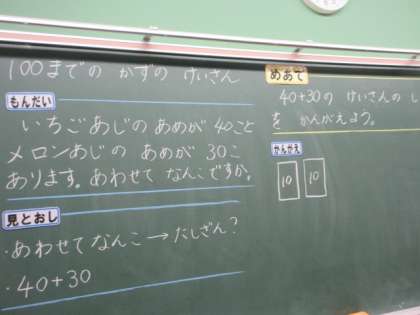 100までの かずの けいさん
もんだい
いちごあじのあめが 40こと
メロンあじの あめが 30こ
あります。あわせて なんこですか。
見とおし
・あわせてなんこ→たしざん?
・40+30
めあて
40+30の けいさんの し
を かんがえよう。
かんがえ
10 10